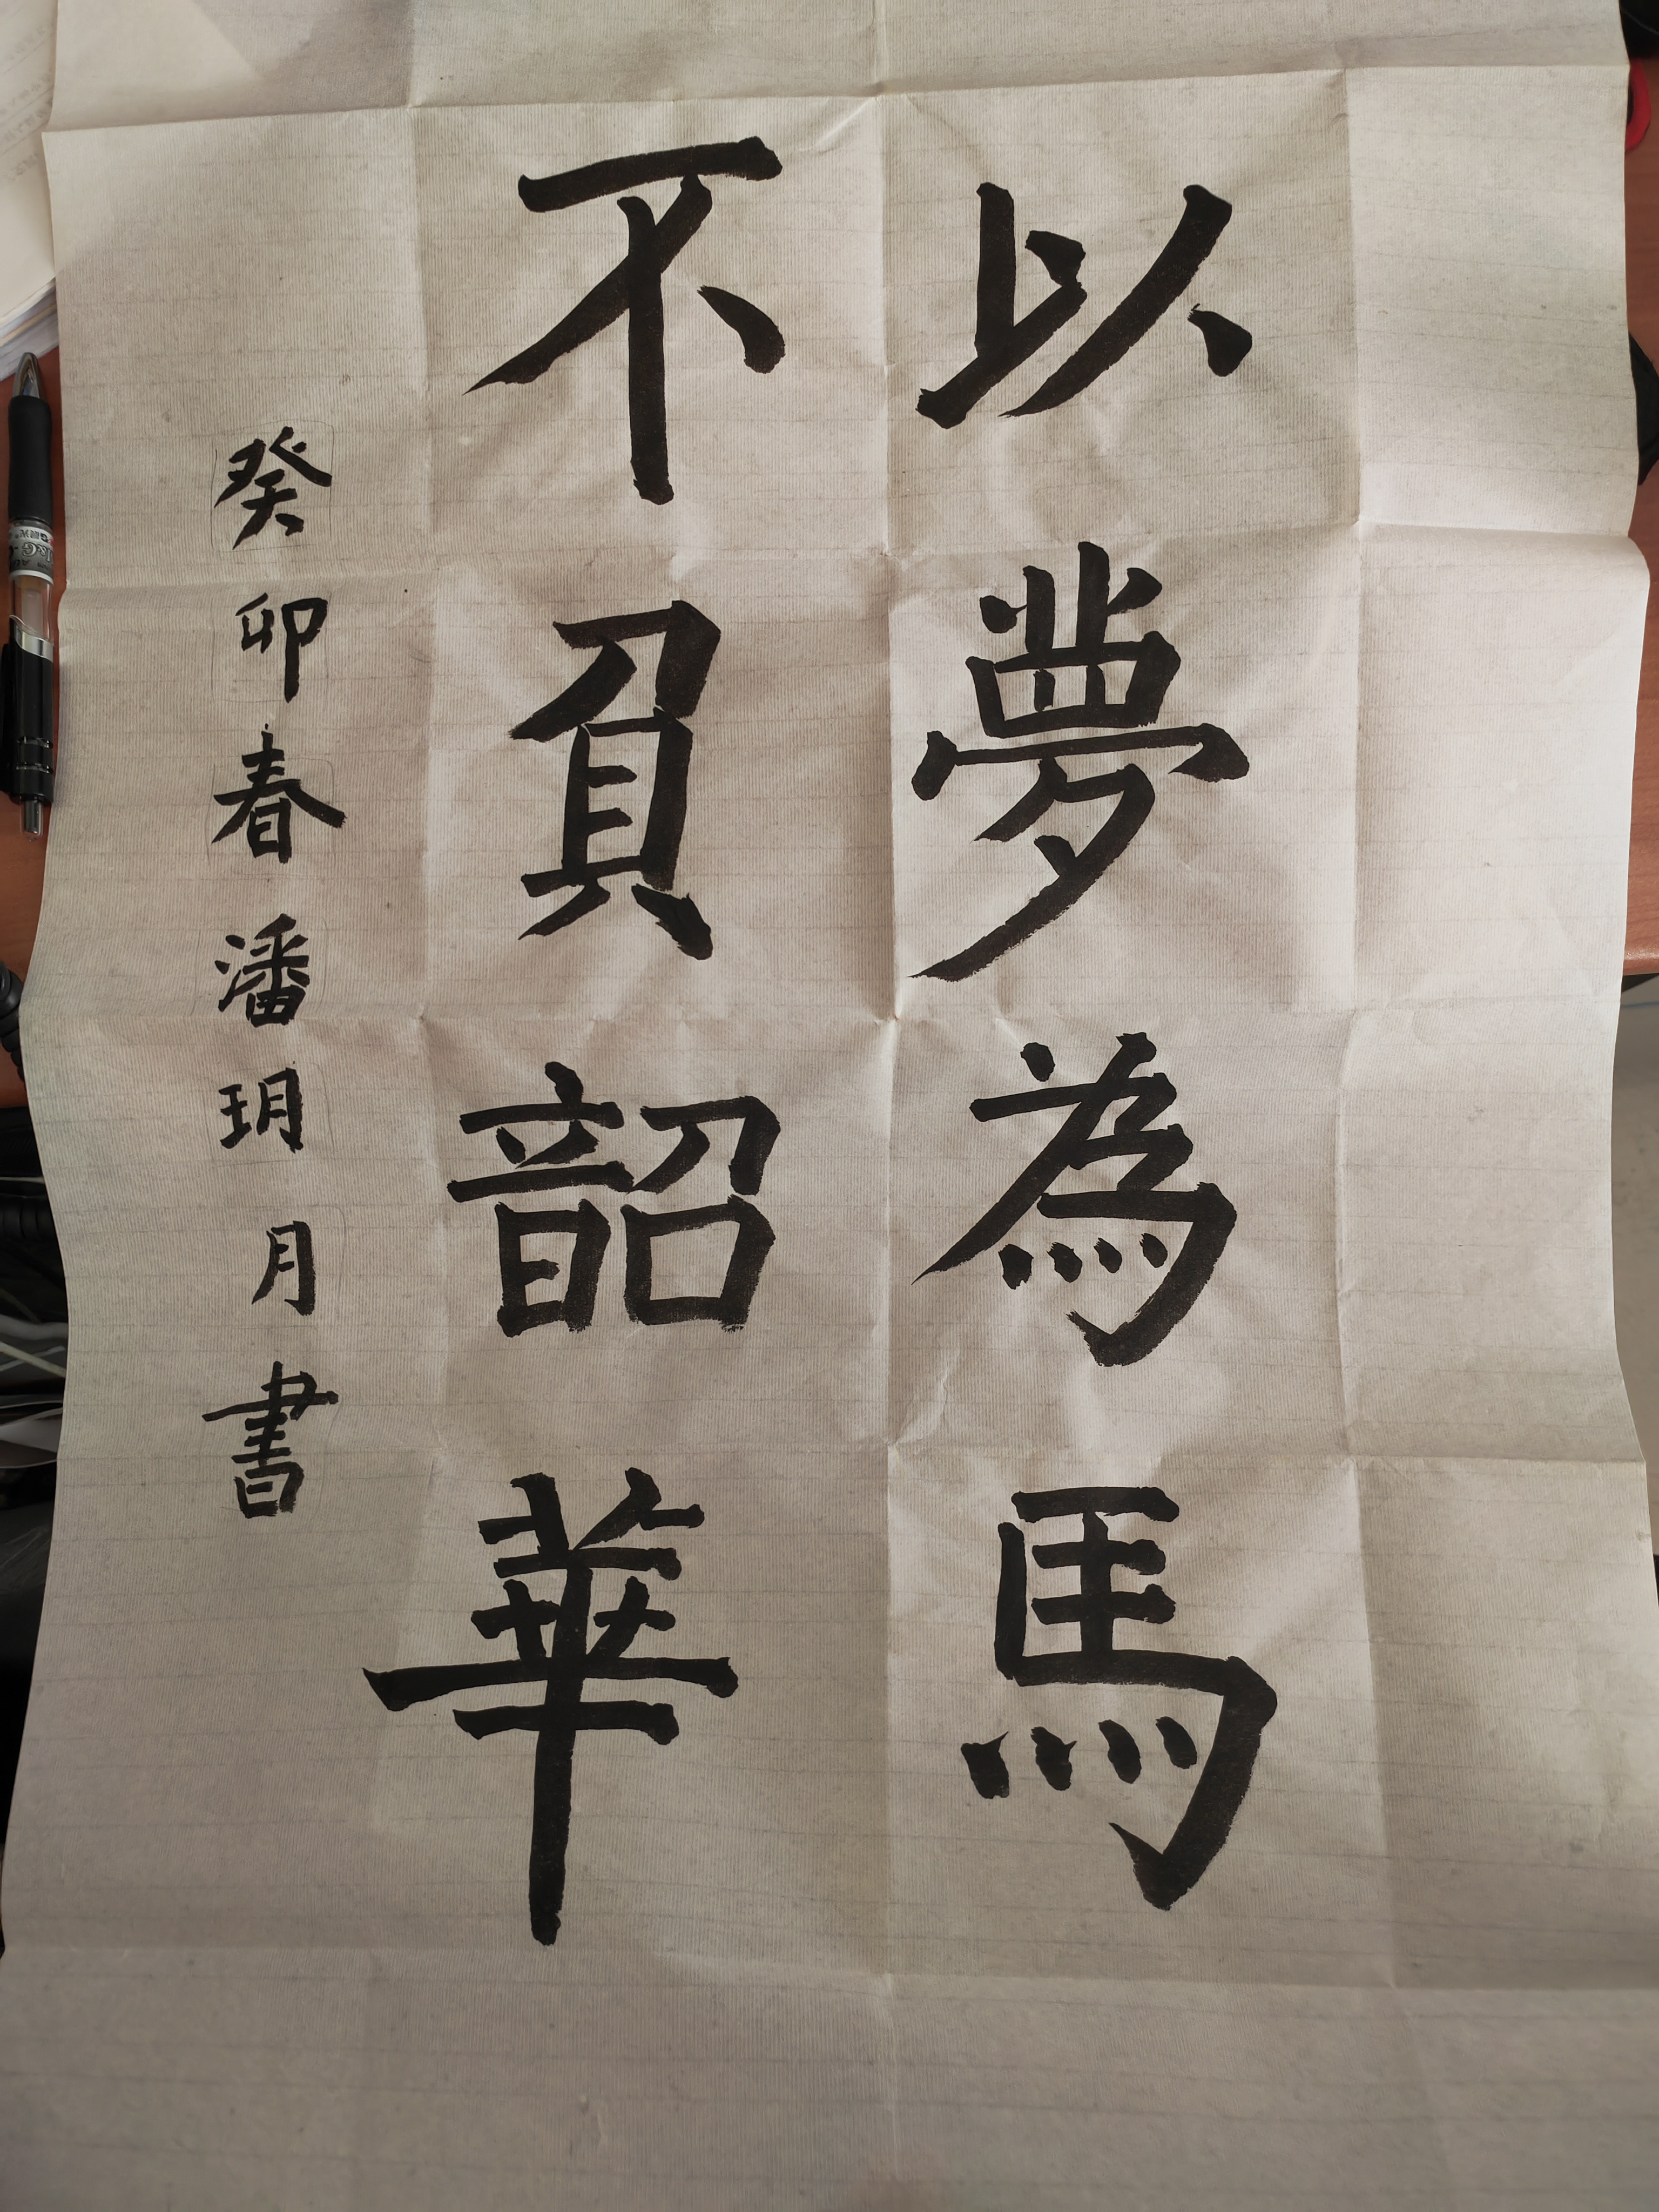 以夢為馬
不負韶華
癸卯春潘玥月書